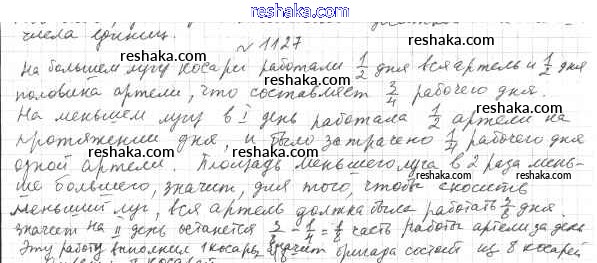 reshaka.com
числа единиц.
№ 1127
На большем лугу косари работали 1/2 дня вся артель и 1/2 дня
половина артели, что составляет 3/4 рабочего дня.
На меньшем лугу в I день работала 1/2 артели на
протяжении дня, и было затрачено 1/4 рабочего дня
одной артели. Площадь меньшего луга в 2 раза мень-
ше большего, значит, для того, чтобы скосить
меньший луг, вся артель должна была работать 3/8 дня.
значит на II день останется 3/8 - 1/4 = 1/8 часть работы артели за день
Эту работу выполнил 1 косарь, значит бригада состоит из 8 косарей
reshaka.com
reshaka.com
reshaka.com
reshaka.com
reshaka.com
reshaka.com
reshaka.com
reshaka.com
reshaka.com
reshaka.com
reshaka.com